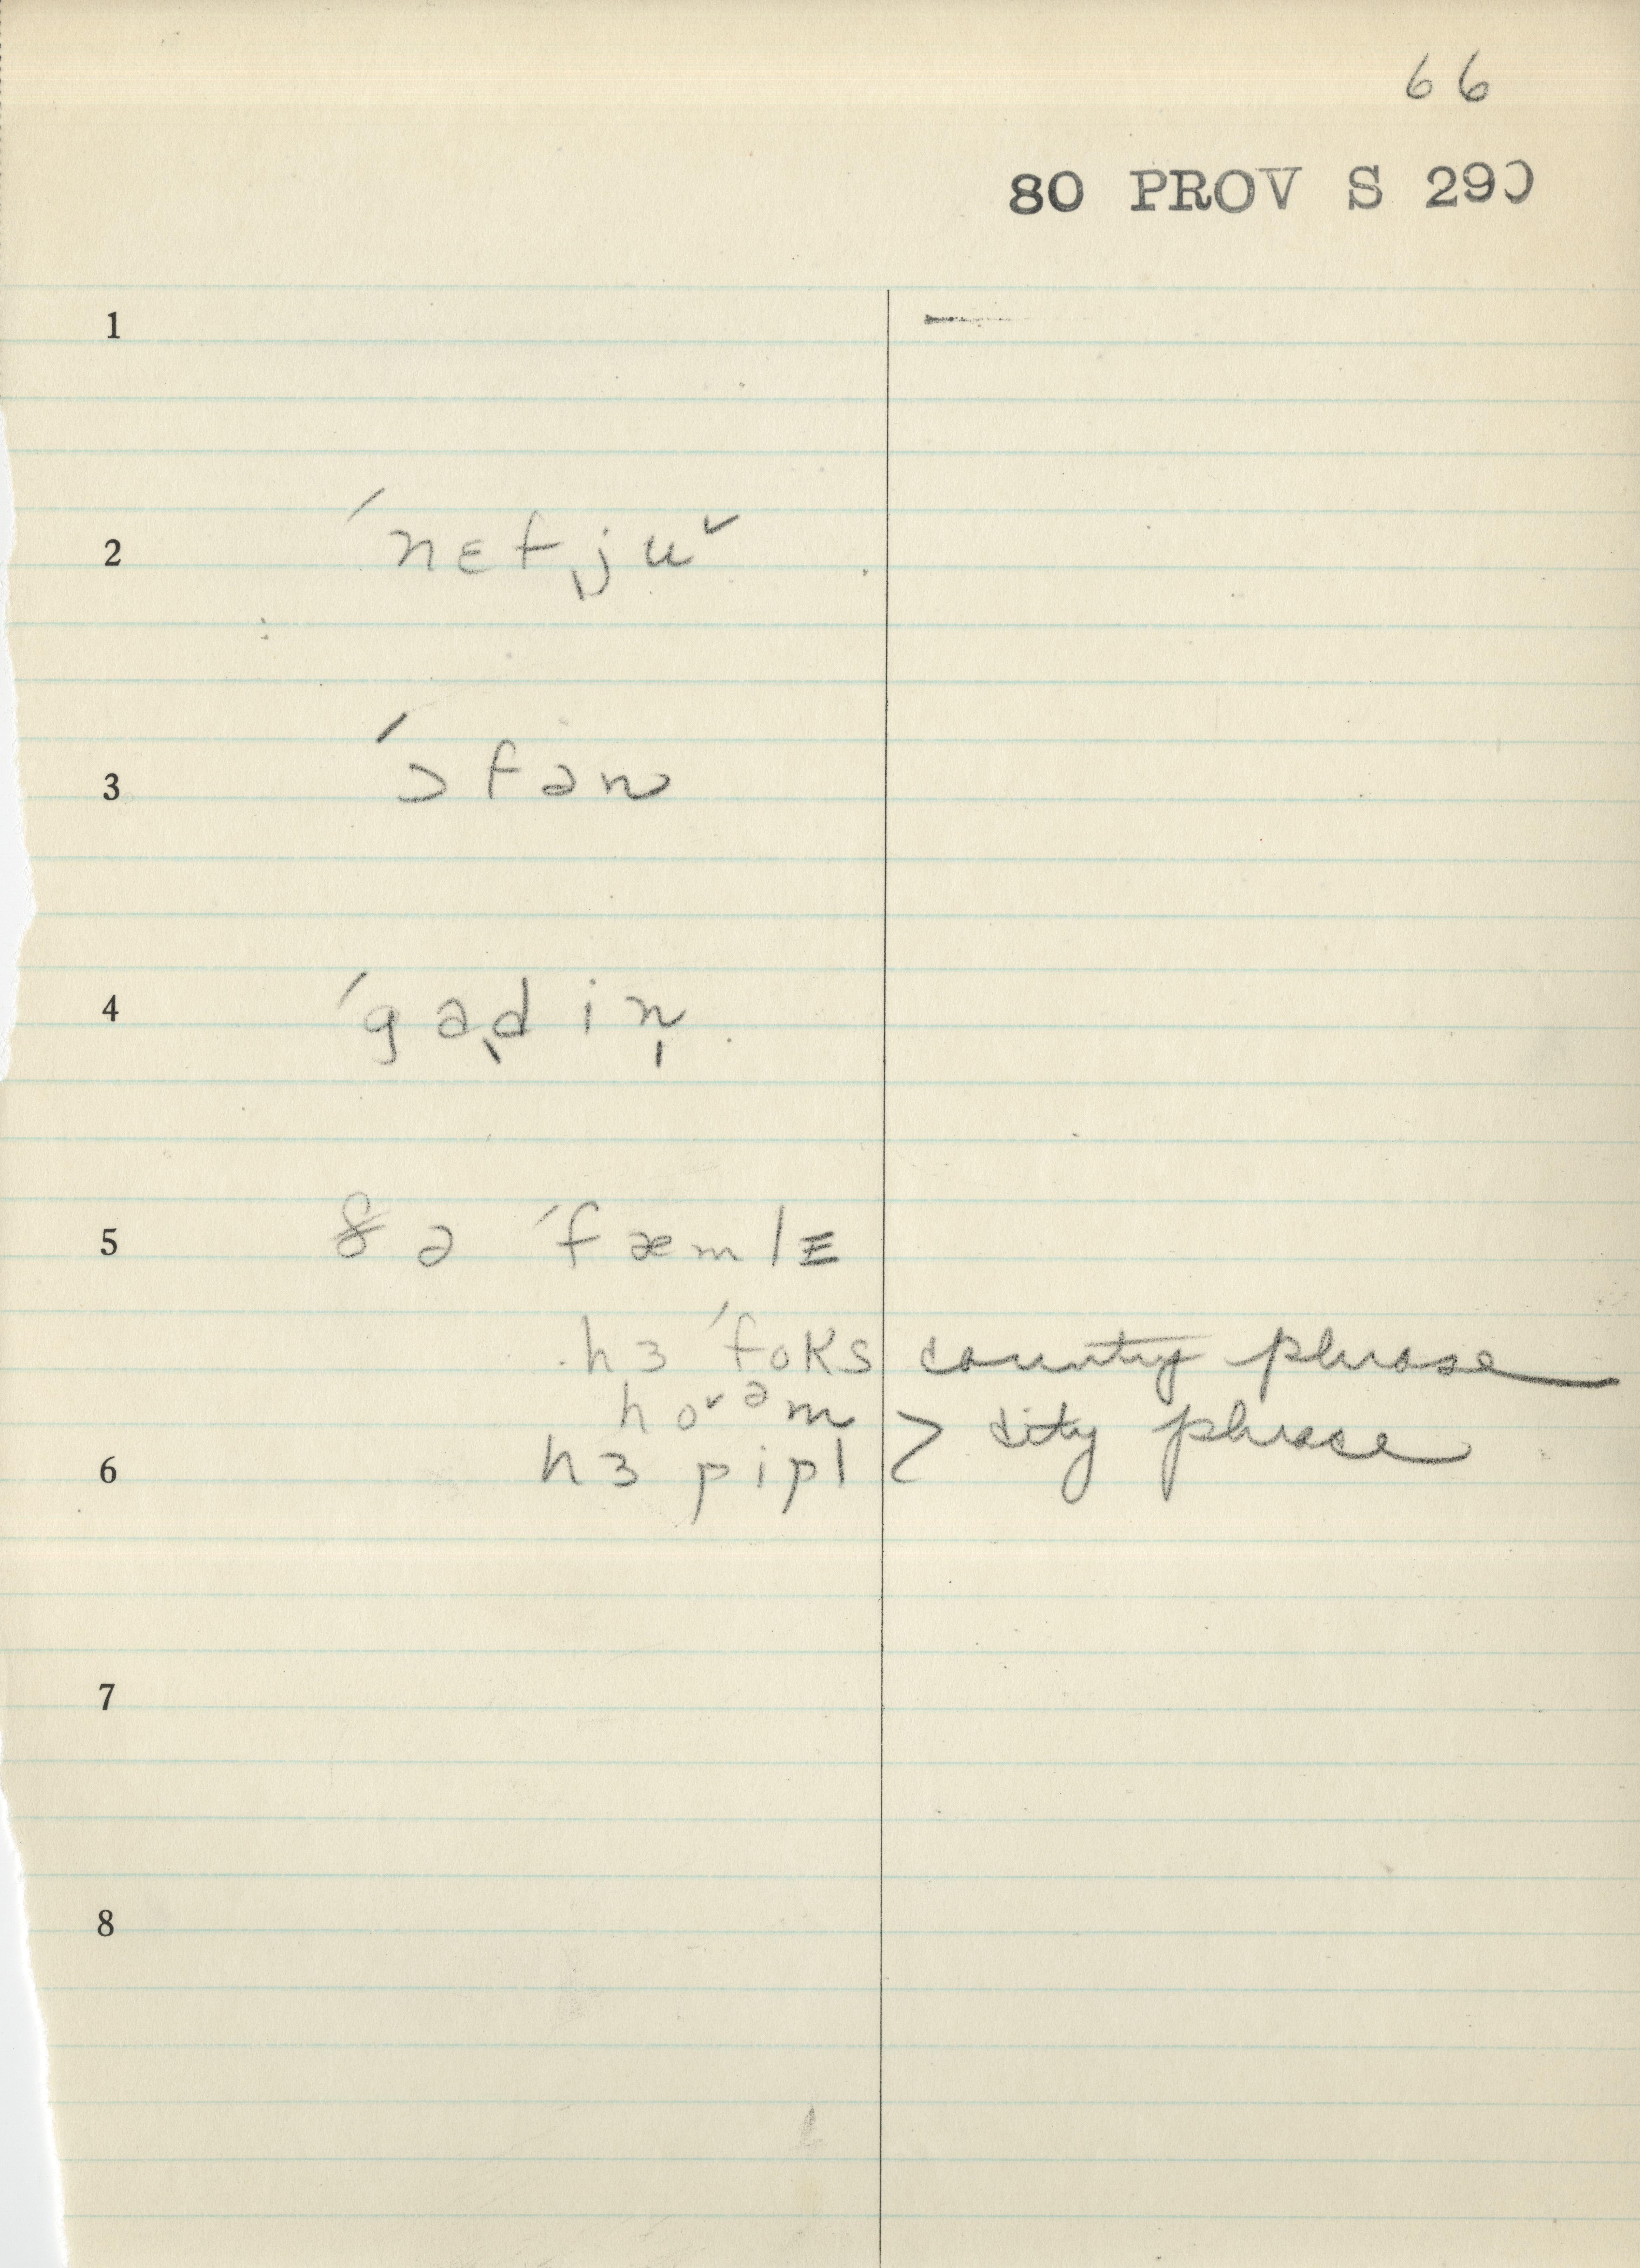 66
80 PROV S 290
1
2 ´nɛfju˅
3 ´ɔfən
4 ´gadin̩
5 ðə ´fæmlɪ
hɜ ´foks country phrase
ho˅əm
6 hɜ pipl > city phrase
7
8